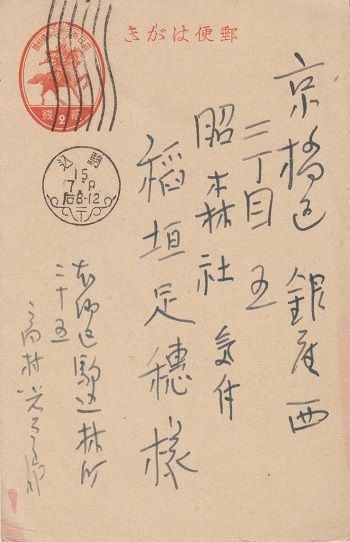 郵便はがき
京橋区 銀座西
三丁目 五
昭森社 気付
稲垣足穂様
本郷区駒込林町
二十五
高村光太郎
大日本帝國郵便
貳2錢
駒込
15
后8-12